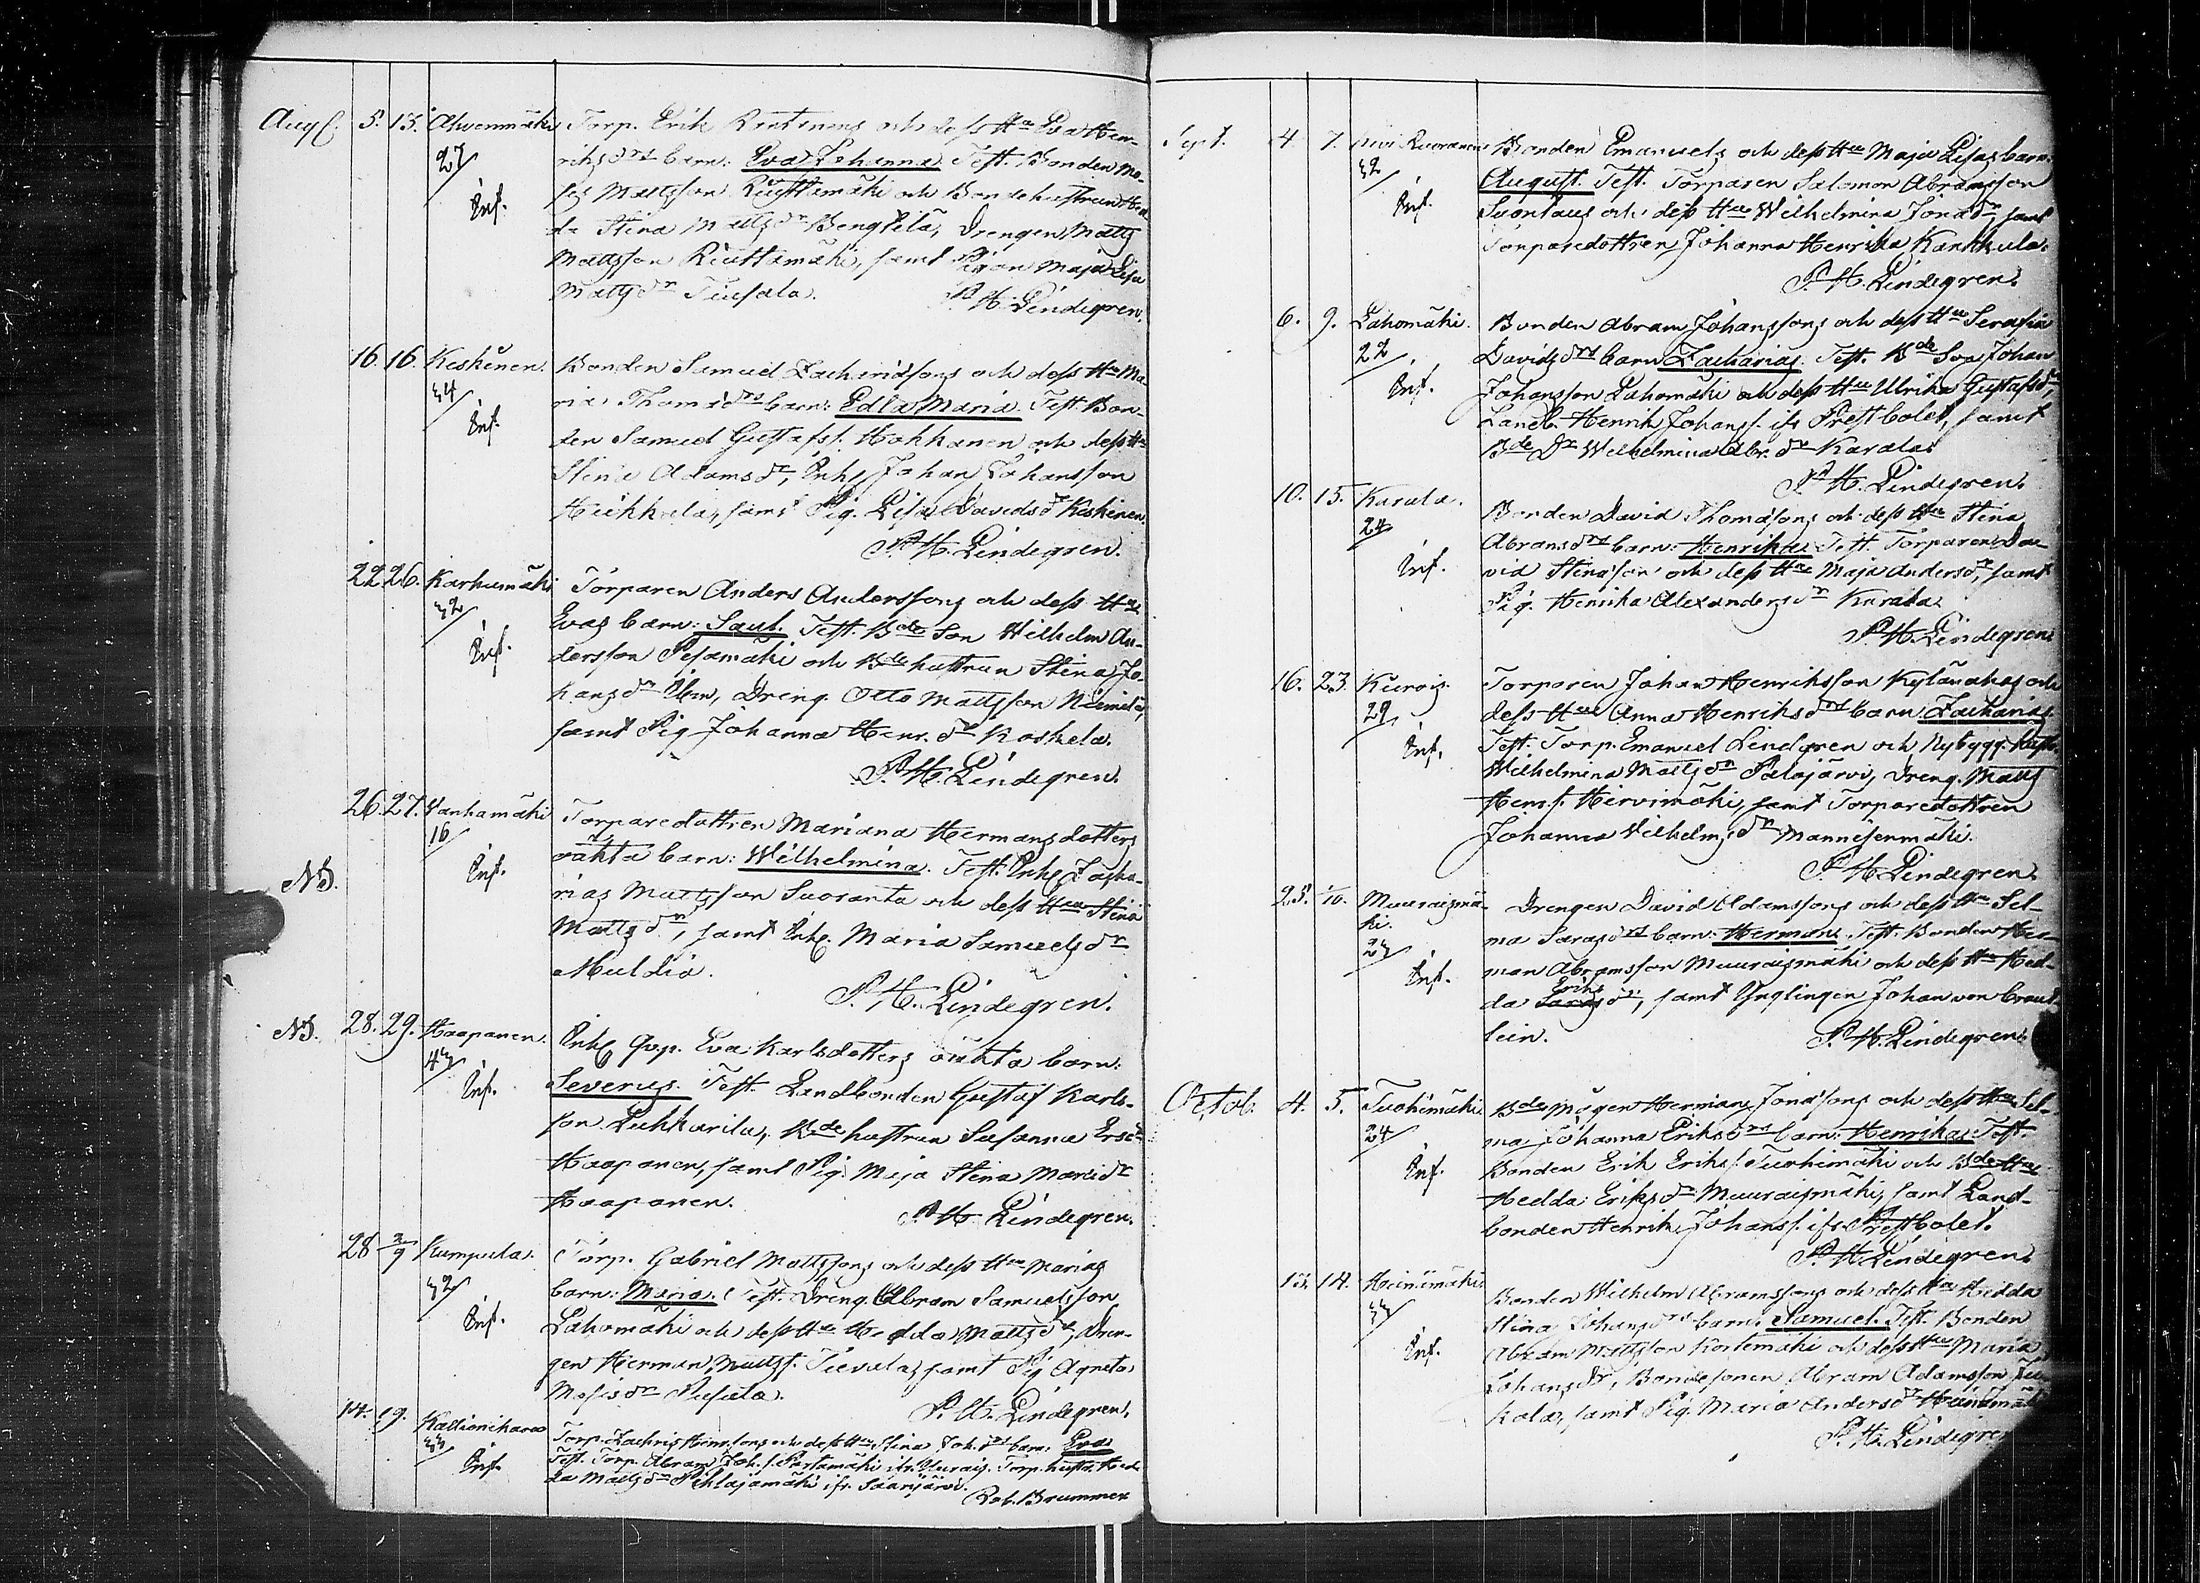 Aug. 5. 13. Ahvenmäki Torp. Erik Rintanens och dess Hu Eva Hen-
27 riksdrs barn: Eva Johanna. Test. Bonden Mo-
Inf. ses Mattsson Riuttamäki och Bondehustrun Hed-
da Stina Mattsdr Bengtilä, Drengen Matts
Mattsson Riuttamäki, samt Pigan Maja Lisa
Mattsdr Tiusala. P. H. Lindegren.
16. 16. Keskinen. Bonden Samuel Zachridsons och dess Hu Ma-
34 ria Thomædrs barn: Edla Maria. Test. Bon-
Inf. den Samuel Gustafss. Hokkanen och dess Hu
Stina Adamsdr, Enkl. Johan Johansson
Heikkila, samt Pig. Lisa Davidsdr Keskinen.
P. H. Lindegren.
22. 26. Karhumäki Torparen Anders Anderssons och dess Hu
32 Evas barn: Saul. Test. Bde Son Wilhelm An-
Inf. dersson Pesämäki och Bdehustrun Stina Jo-
hansdr Ibm, Dreng. Otto Mattsson Niemelä,
samt Pig. Johanna Henr.dr Koskela.
P. H. Lindegren.
26. 27. Vanhamäki Torparedottren Mariana Hermansdotters
16 oäkta barn: Wilhelmina. Test. Enkl. Zacha-
NB. Inf. rias Mattsson Suoranta och dess Hu Stina
Mattsdr, samt Enk. Maria Samuelsdr
Multia.
P. H. Lindegren.
NB. 28. 29. Haapanen. Enkl. Qvp. Eva Karlsdotters oäkta barn:
43 Severus. Test. Landbonden Gustaf Karls-
Inf. son Lukkarila, Bdehustrun Susanna Ersdr
Haapanen, samt Pig. Maja Stina Mariædr
Haapanen. P. H. Lindegren.
28 2/9 Kumpula. Torp. Gabriel Mattssons och dess Hu Marias
32 barn: Maria. Test. Dreng. Abram Samuelsson
Inf. Lahomäki och dess Hu Hedda Mattsdr, Dren-
gen Herman Mattss. Tievala, samt Pig. Agneta
Mosisdr Pusala. P. H. Lindegren.
14. 19. Kallioniharo Torp. Zachris Henr.sons och dess Hu Stina Joh.drs barn: Eva
33 Test. Torp. Abram Joh.s. Partamäki ifr. Uurais. Torp. hustr. Hed-
Inf. da Mattsdr Pihlajamäki ifr. Saarijärvi.
Rob. Brummer
Sept. 4. 7. Ruoranen Bonden Emanuels och dess Hu Maja Lisas barn:
32 August. Test. Torparen Salomon Abramsson
Inf. Svonlaus och dess Hu Wilhelmina Jonædr, samt
Torparedottren Johanna Henrika Kankkula.
P. H. Lindegren.
6. 9. Lahomäki. Bonden Abram Johanssons och dess Hu Serafia
22 Davidsdrs barn Zacharias. Test. Bde Son Johan
Inf. Johansson Lahomäki och dess Hu Ulrika Gustafsdr,
Landb. Henrik Johanss. ifr Prestbolet, samt
Bde Dr Wilhelmina Abr.dr Karala.
P. H. Lindegren.
10. 15. Karala. Bonden David Thomæsons och dess Hu Stina
24 Abramsdrs barn: Henrika. Test. Torparen Da-
Inf. vid Stinæson och dess Hu Maja Andersdr, samt
Pig. Henrika Alexandersdr Karala.
P. H. Lindegren.
16. 23. Kuivais. Torparen Johan Henriksson Kylänahos och
29 dess Hu Anna Henriksdrs barn Zacharias.
Inf. Test. Torp. Emanuel Lindgren och Nybygg. hustr.
Wilhelmina Mattsdr Palojärvi, Dreng. Matts
Henr.s. Hirvimäki, samt Torparedottren
Johanna Wilhelmsdr Mannisenmäki.
P. H. Lindegren.
25. 1/10. Muuraismä- Drengen David Adamssons och dess Hu Sel-
ki. ma Sarasdrs barn: Herman. Test. Bonden Her-
23 man Abramsson Muuraismäki och dess Hu Hed-
Inf. da Eriksdr, samt Ynglingen Johan von Craut-
lein. P. H. Lindegren.
Octob. 4. 5. Tuohimäki. Bde Mågen Herman Jonæsons och dess Hu Sel-
24 ma Johanna Eriksdrs barn: Henrika. Test.
Inf. Bonden Erik Erikss. Tuohimäki och Bde Hu
Hedda Eriksdr Muuraismäki, samt Land-
bonden Henrik Johanss. ifr. Prestbolet.
P. H. Lindegren.
13. 14. Heinimäki. Bonden Wilhelm Abramssons och dess Hu Hedda
33 Stina Johansdrs barn: Samuel. Test. Bonden
Inf. Abram Mattsson Kortemäki och dess Hu Maria
Johansdr, Bondesonen Abram Adamsson
kala, samt Pig. Maria Andersdr Heinimäki
P. H. Lindegren